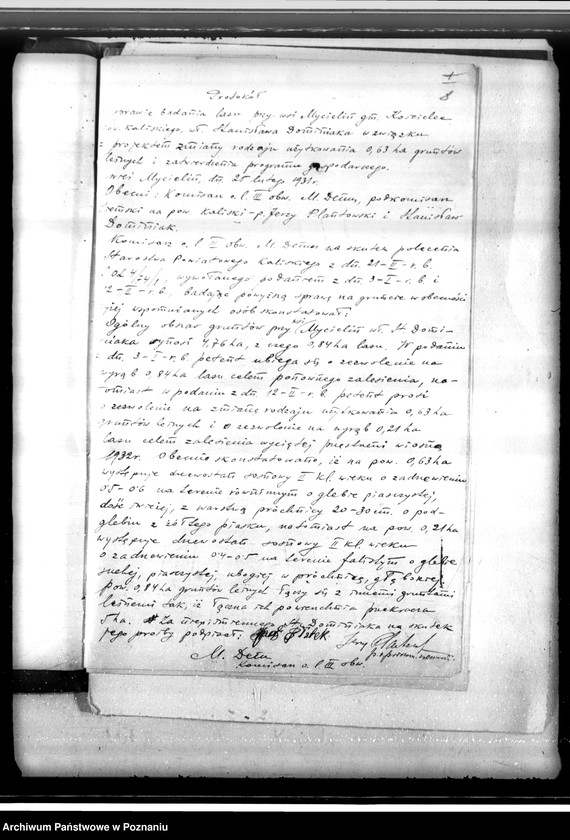 8
Protokół
sprawie badania lasu przy wsi Mycielin gm. Kościelec
pow. kaliskiego, wł. Stanisława Dominiaka w związku
z projektem zmiany rodzaju użytkowania 0,63 ha gruntów
leśnych i zatwierdzenia programu gospodarczego.
wieś Mycielin, dn. 25 lutego 1931r.
Obecni: Komisarz o.l. III obw. M. Detm, podkomisarz
ziemski na pow. kaliski - p. Jerzy Plantowski i Stanisław
Dominiak.
Komisarz o.l. III obw. M. Detm na skutek polecenia
Starostwa Powiatowego Kaliskiego z dn. 21-II-r.b.
wywołanego podaniem z dn. 3-I-r.b. i
12-II-r.b., badając powyższą sprawę na gruncie w obecności
wyżej wspomnianych osób skonstatował:
Ogólny obszar gruntów przy wsi Mycielin wł. St. Domi-
niaka wynosi 4,76 ha, z czego 0,84 ha lasu. W podaniu
z dn. 3-I-r.b. petent ubiega się o zezwolenie na
wyrąb 0,84 ha lasu celem ponownego zalesienia, na-
tomiast w podaniu z dn. 12-II-r.b. petent prosi
o zezwolenie na zmianę rodzaju użytkowania 0,63 ha
gruntów leśnych i o zezwolenie na wyrąb 0,21 ha
lasu celem zalesienia wyciętej przestrzeni wiosną
1932r. Obecnie skonstatowano, iż na pow. 0,63 ha
występuje drzewostan sosnowy II kl. wieku o zadrzewieniu
0·5-0·6 na terenie równinnym o glebie piaszczystej,
dość świeżej, z warstwą próchnicy 20-30 cm. o pod-
glebiu z żółtego piasku, natomiast na pow. 0,21 ha
występuje drzewostan sosnowy II kl. wieku
o zadrzewieniu 0·4-0·5 na terenie falistym o glebie
suchej, piaszczystej, ubogiej w próchnicę, głębokiej.
Pow. 0,84 ha gruntów leśnych łączy się z innemi gruntami
leśnemi tak, iż łączna ich powierzchnia przekracza
5 ha. Za niepiśmiennego St. Dominiaka na skutek
jego prośby podpisał:
M. Detm
Komisarz o.l. III obw.
Archiwum Państwowe w Poznaniu